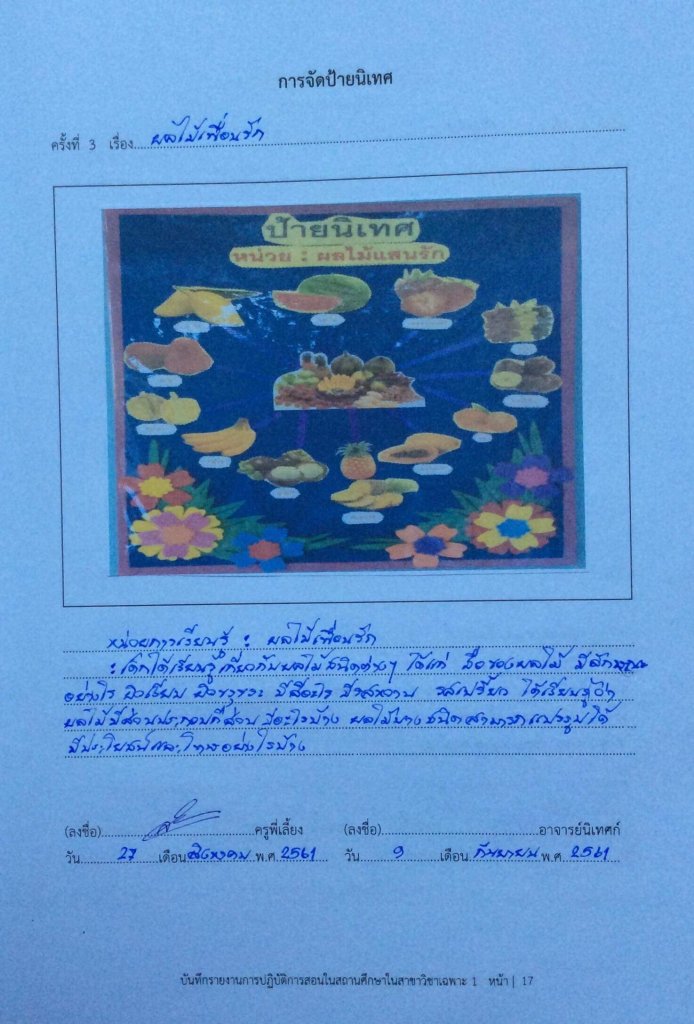 การจัดป้ายนิเทศ
ครั้งที่ 3 เรื่อง ผลไม้เพื่อนรัก
ป้ายนิเทศ
หน่วย : ผลไม้แสนรัก
หน่วยการเรียนรู้ : ผลไม้เพื่อนรัก
: เด็กได้เรียนรู้เกี่ยวกับผลไม้ชนิดต่างๆ ได้แก่ ชื่อของผลไม้ มีลักษณะ
อย่างไร ผิวเรียบ ผิวขรุขระ มีสีอะไร มีรสหวาน รสเปรี้ยว ได้เรียนรู้ว่า
ผลไม้มีส่วนประกอบกี่ส่วน มีอะไรบ้าง ผลไม้บางชนิดสามารถแปรรูปได้
มีประโยชน์และโทษอย่างไรบ้าง
(ลงชื่อ) ครูพี่เลี้ยง (ลงชื่อ) อาจารย์นิเทศก์
วัน 27 เดือน สิงหาคม พ.ศ. 2561 วัน 9 เดือน กันยายน พ.ศ. 2561
บันทึกรายงานการปฏิบัติการสอนในสถานศึกษาในสาขาวิชาเฉพาะ 1 หน้า | 17